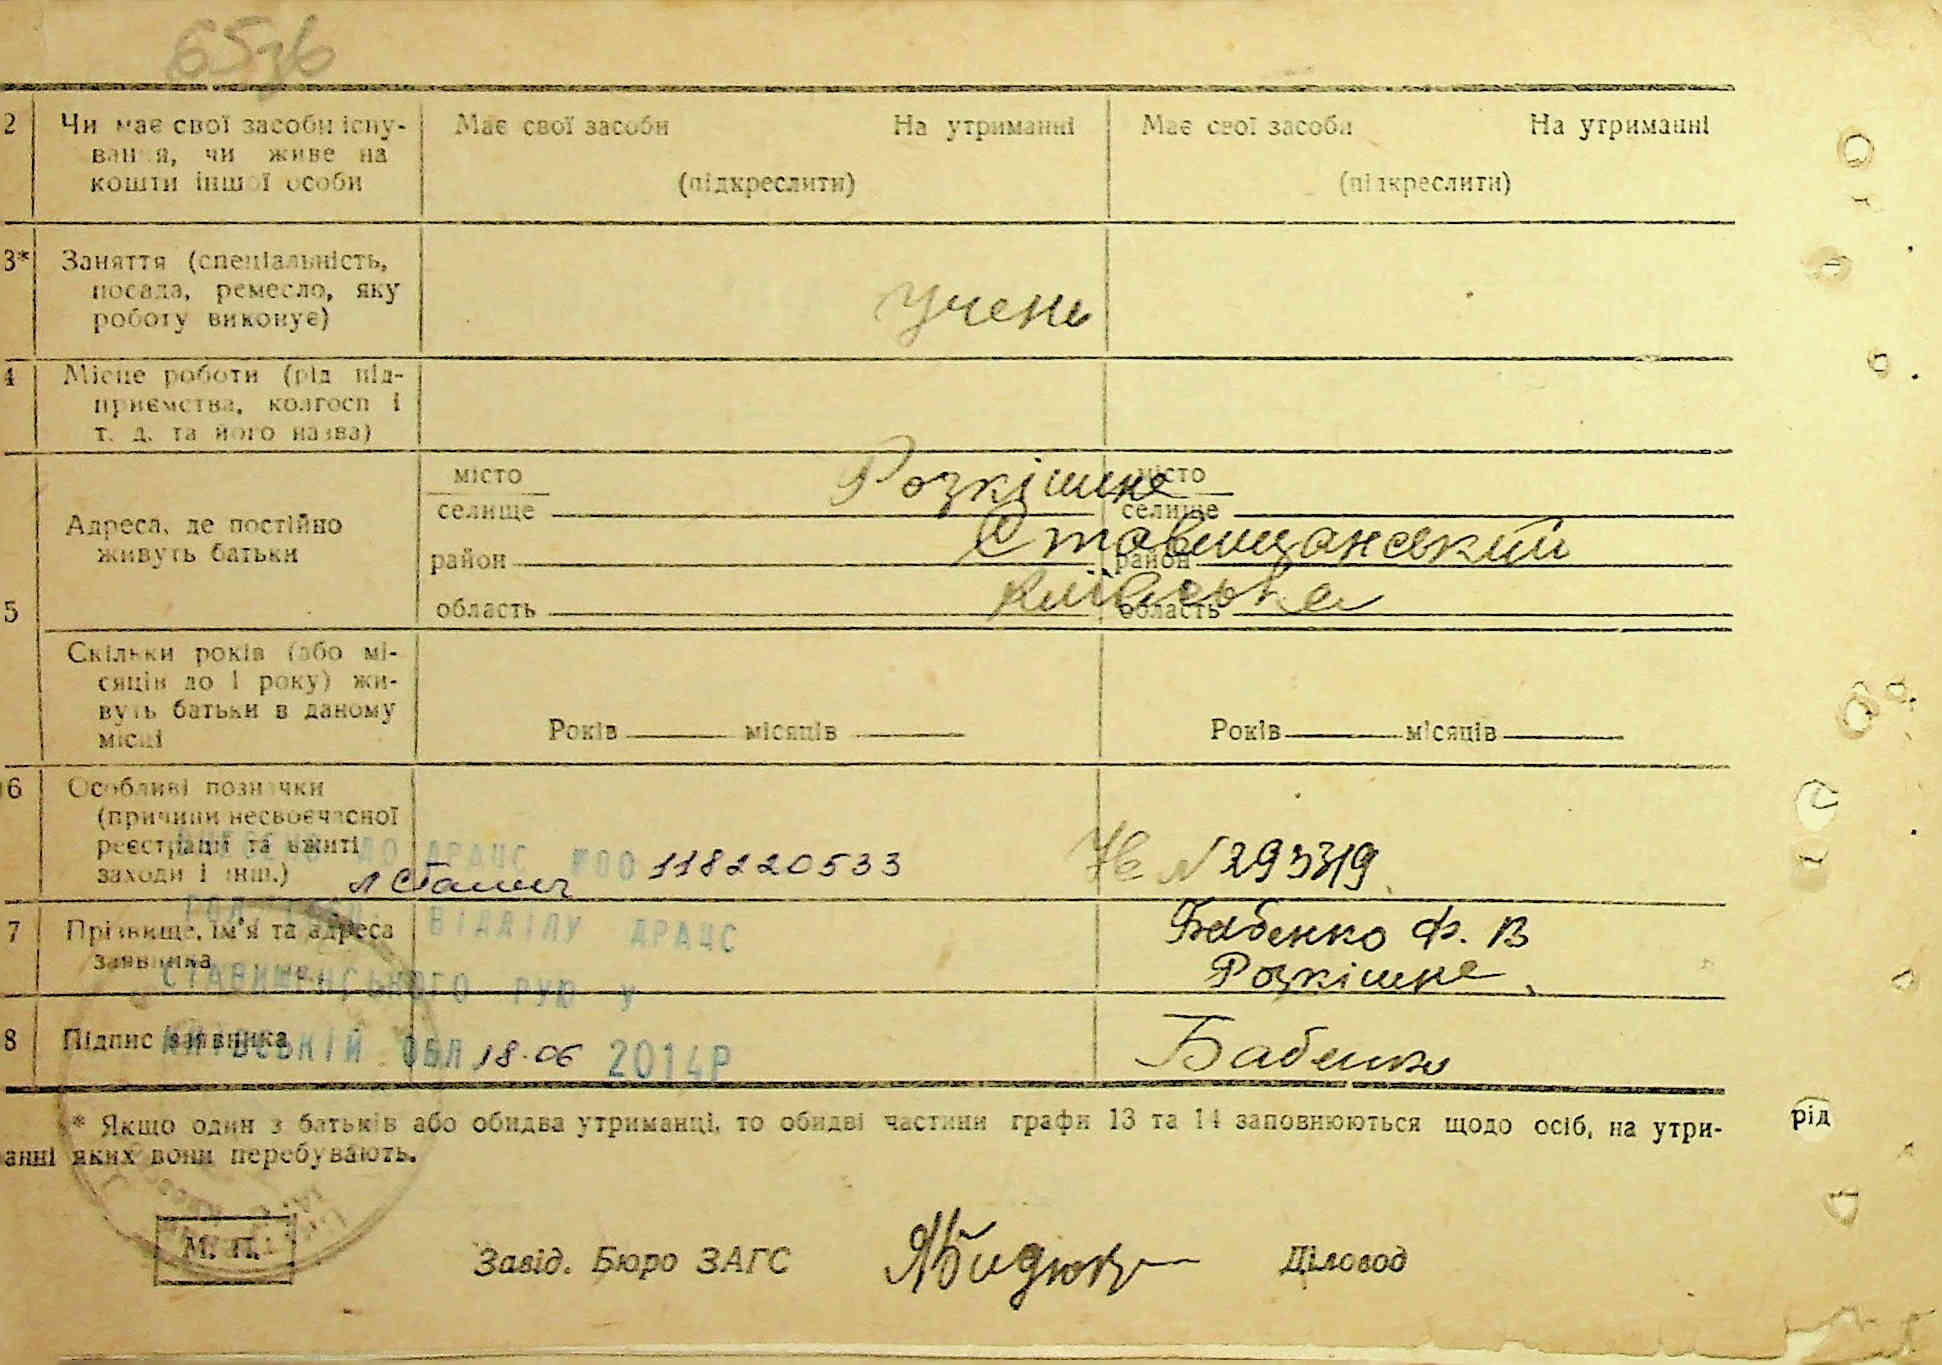 2 Чи має свої засоби існу-
вання, чи живе на
кошти іншої особи
Має свої засоби На утриманні
(підкреслити)
Має свої засоби На утриманні
(підкреслити)
3* Заняття (спеціальність,
посада, ремесло, яку
роботу виконує)
учень
4 Місце роботи (рід під-
приємства, колгосп і
т. д. та його назва)
5
Адреса, де постійно
живуть батьки
місто
селище
район
область
місто
селище
район
область
Розкішне
Ставищанський
Київська
Скільки років (або мі-
сяців до 1 року) жи-
вуть батьки в даному
місці
Років місяців
Років місяців
6 Особливі позначки
(причини несвоєчасної
реєстрації та вжиті
заходи і інш.)
ДО ДРАЦС №00 118220533
№ 293319
ВІДДІЛУ ДРАЦС
СТАВИЩЕНСЬКОГО РУЮ У
КИЇВСЬКІЙ ОБЛ 18.06 2014Р
7 Прізвище, ім'я та адреса
заявника
Бабенко Ф. В
Розкішне
8 Підпис заявника
Бабенко
* Якщо один з батьків або обидва утриманці, то обидві частини графи 13 та 14 заповнюються щодо осіб, на утри-
анні яких вони перебувають.
рід
М. П.
Завід. Бюро ЗАГС
Діловод